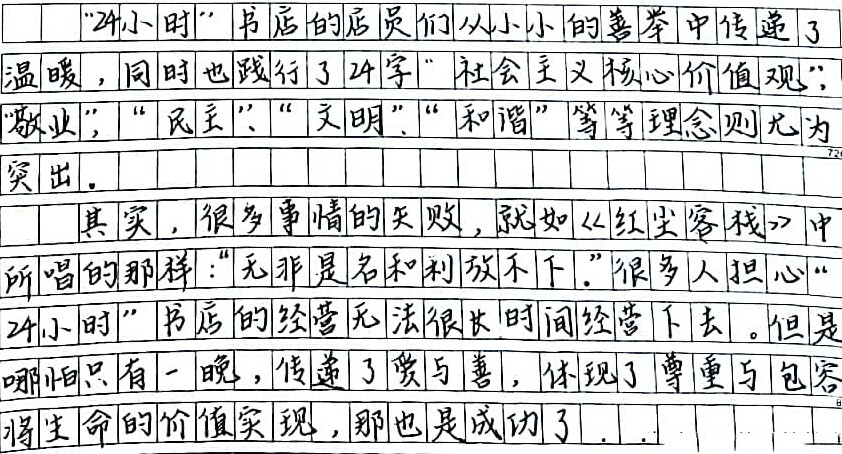 “24小时”书店的店员们从小小的善举中传递了
温暖，同时也践行了24字“社会主义核心价值观”，
“敬业”，“民主”、“文明”、“和谐”等等理念则尤为
突出。
其实，很多事情的失败，就如《红尘客栈》中
所唱的那样：“无非是名和利放不下。”很多人担心“
24小时”书店的经营无法很长时间经营下去。但是
哪怕只有一晚，传递了爱与善，体现了尊重与包容
将生命的价值实现，那也是成功了..